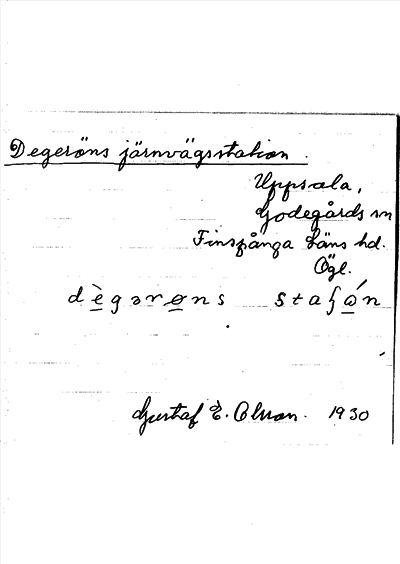 Degeröns järnvägsstation.
Uppsala,
Godegårds sn
Finspånga Läns hd.
Ögl.
dègərøns staʃɷ́n
Gustaf E. Olsson. 1930